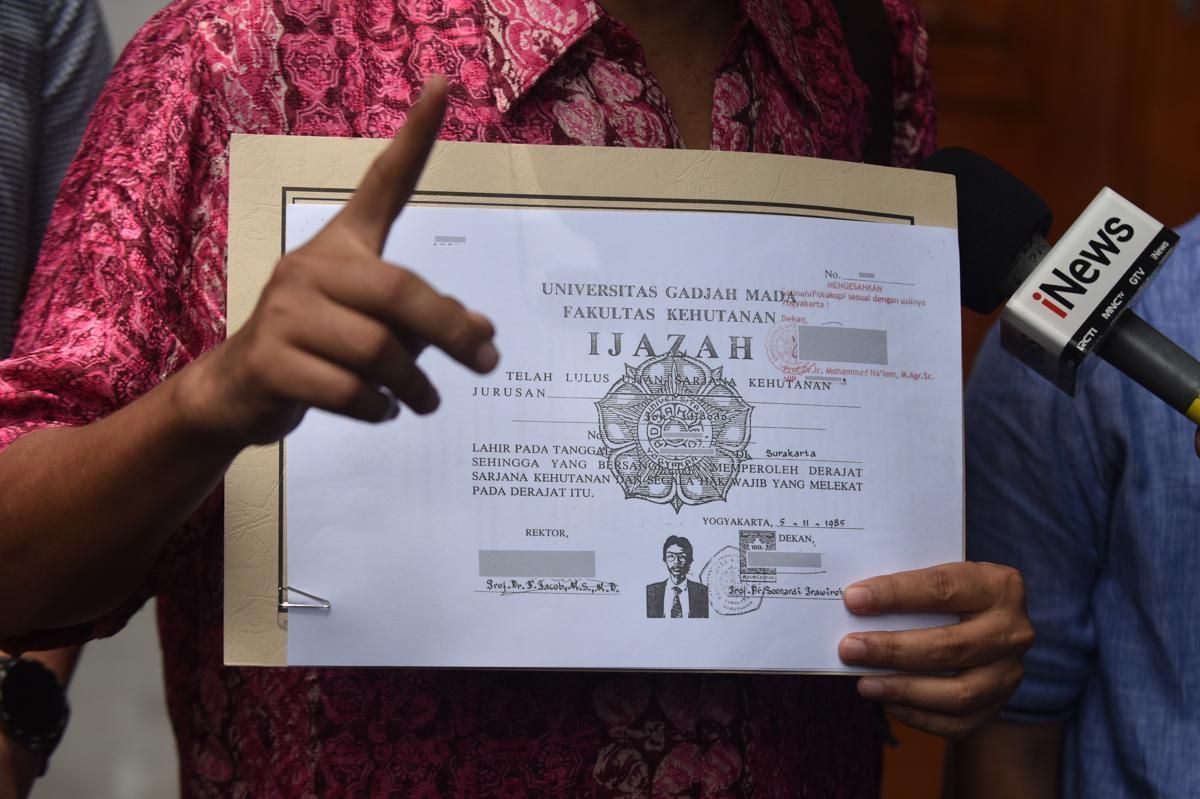 No.
UNIVERSITAS GADJAH MADA
FAKULTAS KEHUTANAN
IJAZAH
MENGESAHKAN
Salinan/Fotokopi sesuai dengan aslinya
Yogyakarta :
Dekan,
Prof.Dr.Ir. Mohammad Na'iem, M.Agr.Sc.
NIP.
TELAH LULUS UJIAN SARJANA KEHUTANAN
JURUSAN
No
LAHIR PADA TANGGAL DI Surakarta
SEHINGGA YANG BERSANGKUTAN MEMPEROLEH DERAJAT
SARJANA KEHUTANAN DAN SEGALA HAK WAJIB YANG MELEKAT
PADA DERAJAT ITU.
YOGYAKARTA, 5 - 11 - 1985
REKTOR,
DEKAN,
100,-
Prof. Dr. T. Jacob, M.S., M.D.
Prof. Dr. Soenardi Prawiroh
iNews
RCTI MNCTV GTV iNews